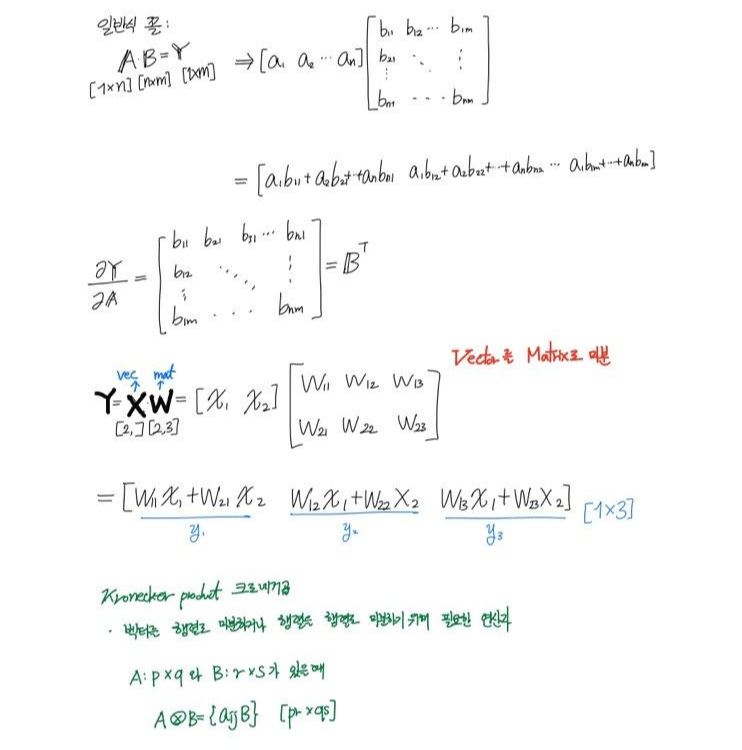 일반식 꼴:
A B = Y ⇒ [a₁ a₂ ⋯ aₙ] [b₁₁ b₁₂ ⋯ b₁ₘ
[1×n] [n×m] [1×m] b₂₁ ⋱ ⋮
⋮
bₙ₁ ⋯ bₙₘ]
= [a₁b₁₁+a₂b₂₁+⋯+aₙbₙ₁ a₁b₁₂+a₂b₂₂+⋯+aₙbₙ₂ ⋯ a₁b₁ₘ+⋯+aₙbₙₘ]
∂Y/∂A = [b₁₁ b₂₁ b₃₁ ⋯ bₙ₁
b₁₂ ⋱ ⋮
⋮
b₁ₘ ⋯ bₙₘ] = Bᵀ
Vector를 Matrix로 미분
vec mat
Y = XW = [x₁ x₂] [W₁₁ W₁₂ W₁₃
[2,] [2,3] W₂₁ W₂₂ W₂₃]
= [W₁₁x₁+W₂₁x₂ W₁₂x₁+W₂₂x₂ W₁₃x₁+W₂₃x₂] [1×3]
y₁ y₂ y₃
Kronecker product 크로네커곱
· 벡터를 행렬로 미분하거나 행렬을 행렬로 미분하기 위해 필요한 연산자
A: p×q 와 B: r×s가 있을 때
A⊗B = {aᵢⱼB} [pr×qs]